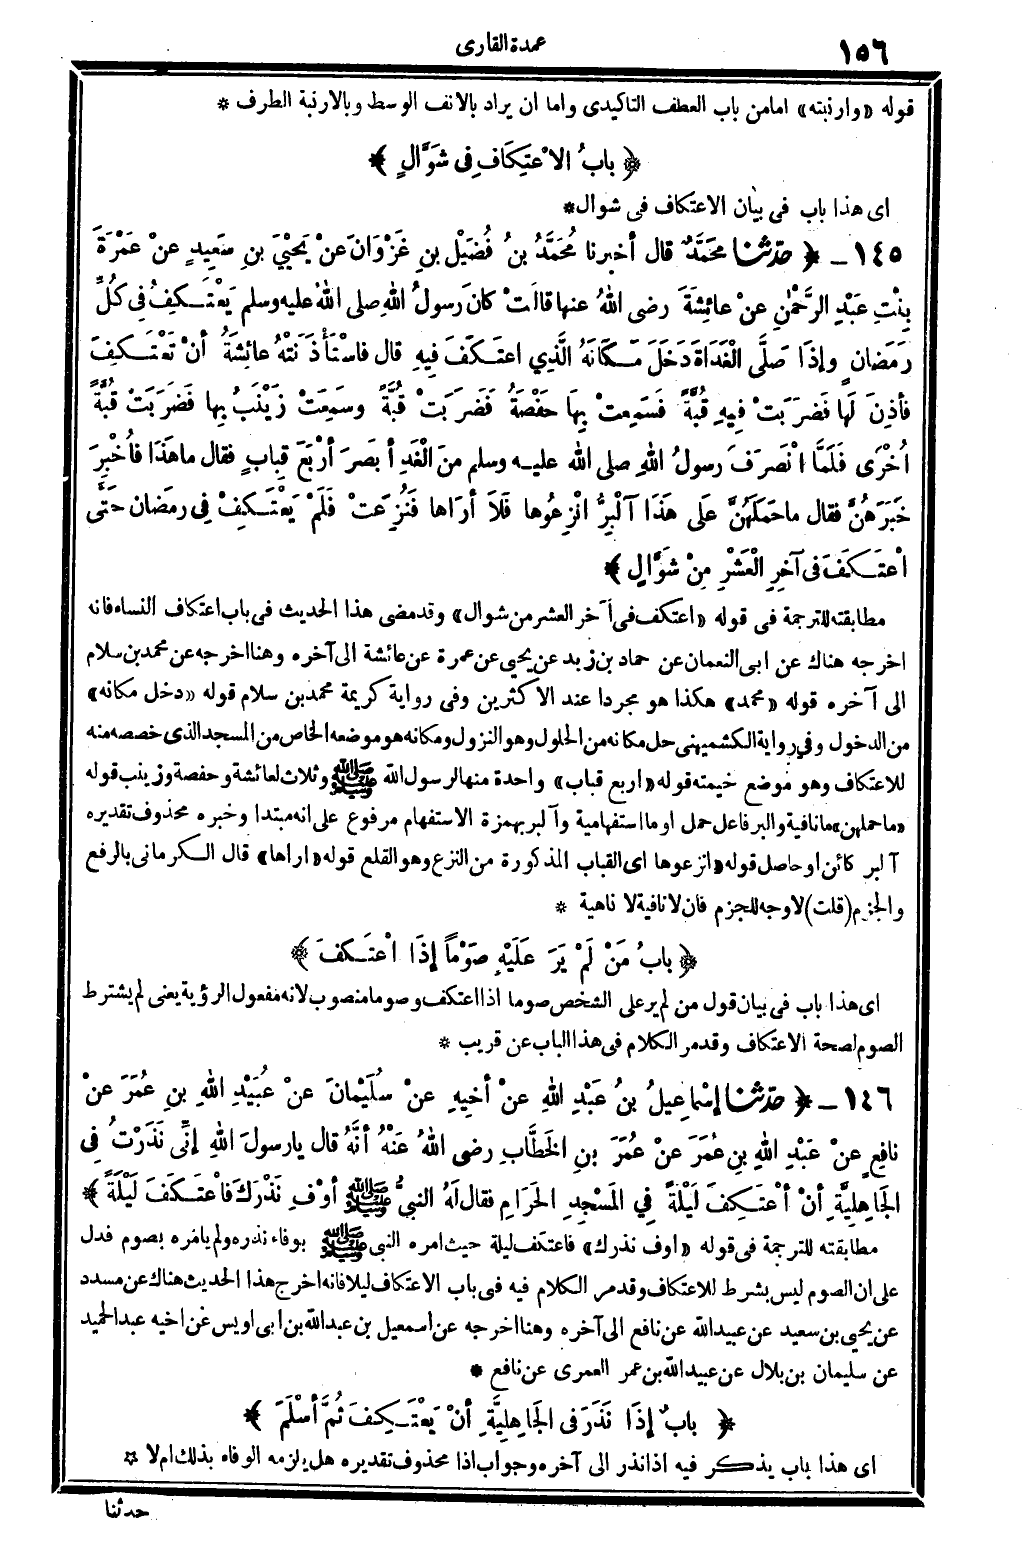 ١٥٦
عمدة القارى
قوله «وارنبته» امامن باب العطف التاكيدى واما ان يراد بالانف الوسط وبالارنبة الطرف *
﴿ بابُ الاِعْتِكَافِ فِى شَوَّالٍ ﴾
اى هذا باب فى بيان الاعتكاف فى شوال*
١٤٥ - ﴿ حَدَّثَنَا مُحَمَّدٌ قال أخبرنا مُحَمَّدُ بنُ فُضَيْلِ بنِ غَزْوَانَ عنْ يَحْيَىٰ بنِ سَعِيدٍ عنْ عَمْرَةَ
بِنْتِ عَبْدِ الرَّحْمٰنِ عنْ عائِشَةَ رضى اللهُ عنها قالَتْ كانَ رسولُ اللهِ صلى اللهُ عليه وسلم يَعْتَكِفُ فى كُلِّ
رَمَضَانٍ وإذَا صَلَّى الْغَدَاةَ دَخَلَ مَكانَهُ الَّذِي اعتَكَفَ فِيهِ قال فاسْتَأْذَنَتْهُ عائِشَةُ أنْ تَعْتَكِفَ
فأذِنَ لَهَا فَضَرَبَتْ فِيهِ قُبَّةً فَسَمِعتْ بِهَا حَفْصَةُ فَضَرَبَتْ قُبَّةً وسَمِعَتْ زَيْنَبُ بِها فَضَرَبَتْ قُبَّةً
اُخْرَى فَلَمَّا انْصَرَفَ رسولُ اللهِ صلى الله عليه وسلم مِنَ الْغَدِ أبصَرَ أرْبَعَ قِبابٍ فقال ماهَذَا فاُخْبِرَ
خَبَرَهُنَّ فقال ماحَمَلَهُنَّ عَلَى هَذَا آلْبِرُّ انْزِعُوها فَلاَ أرَاها فَنُزِعَتْ فَلَمْ يَعْتَكِفْ فى رمَضان حَتَّى
اعْتَكَفَ فى آخِرِ الْعَشْرِ مِنْ شَوَّالٍ ﴾
مطابقته للترجمة فى قوله «اعتكف فى آخر العشر من شوال» وقد مضى هذا الحديث فى باب اعتكاف النساء فانه
اخرجه هناك عن ابى النعمان عن حماد بن زيد عن يحيى عن عمرة عن عائشة الى آخره وهنا اخرجه عن محمد بن سلام
الى آخره قوله «محمد» هكذا هو مجردا عند الاكثرين وفى رواية كريمة محمد بن سلام قوله «دخل مكانه»
من الدخول وفى رواية الكشميهنى حل مكانه من الحلول وهو النزول ومكانه هو موضعه الخاص من المسجد الذى خصصه منه
للاعتكاف وهو موضع خيمته قوله «اربع قباب» واحدة منها لرسول الله ﷺ وثلاث لعائشة وحفصة وزينب قوله
«ماحملهن» مانافية والبر فاعل حمل اوما استفهامية وآلبر بهمزة الاستفهام مرفوع على انه مبتدا وخبره محذوف تقديره
آلبر كائن او حاصل قوله «انزعوها اى القباب المذكورة من النزع وهو القلع قوله «اراها» قال الكرمانى بالرفع
والجزم (قلت) لا وجه للجزم فان لا نافية لا ناهية *
﴿ بابُ مَنْ لَمْ يَرَ عَلَيْهِ صَوْماً إذَا اعْتَكَفَ ﴾
اى هذا باب فى بيان قول من لم ير على الشخص صوما اذا اعتكف وصوما منصوب لانه مفعول الرؤية يعنى لم يشترط
الصوم لصحة الاعتكاف وقدمر الكلام فى هذا الباب عن قريب *
١٤٦ - ﴿ حَدَّثَنَا إسْمَاعِيلُ بنُ عَبْدِ اللهِ عنْ أخِيهِ عنْ سُلَيْمَانَ عنْ عُبَيْدِ اللهِ بنِ عُمَرَ عنْ
نافِعٍ عنْ عَبْدِ اللهِ بنِ عُمَرَ عنْ عُمَرَ بنِ الخَطَّابِ رضى اللهُ عَنْهُ أنَّهُ قال يارسولَ اللهِ إنِّى نَذَرْتُ فى
الجَاهِلِيَّةِ أنْ أعْتَكِفَ لَيْلَةً فِي المَسْجِدِ الحَرَامِ فقال لَهُ النبيُّ ﷺ أوْفِ نَذْرَكَ فاعْتَكَفَ لَيْلَةً ﴾
مطابقته للترجمة فى قوله «اوف نذرك» فاعتكف ليلة حيث امره النبى ﷺ بوفاء نذره ولم يامره بصوم فدل
على ان الصوم ليس بشرط للاعتكاف وقدمر الكلام فيه فى باب الاعتكاف ليلا فانه اخرج هذا الحديث هناك عن مسدد
عن يحيى بن سعيد عن عبيدالله عن نافع الى آخره وهنا اخرجه عن اسمعيل بن عبدالله بن ابى اويس عن اخيه عبدالحميد
عن سليمان بن بلال عن عبيدالله بن عمر العمرى عن نافع *
﴿ بابٌ إذَا نَذَرَ فى الجَاهِلِيَّةِ أنْ يَعْتَكِفَ ثُمَّ أسْلَمَ ﴾
اى هذا باب يذكر فيه اذا نذر الى آخره وجواب اذا محذوف تقديره هل يلزمه الوفاء بذلك ام لا *
حدثنا